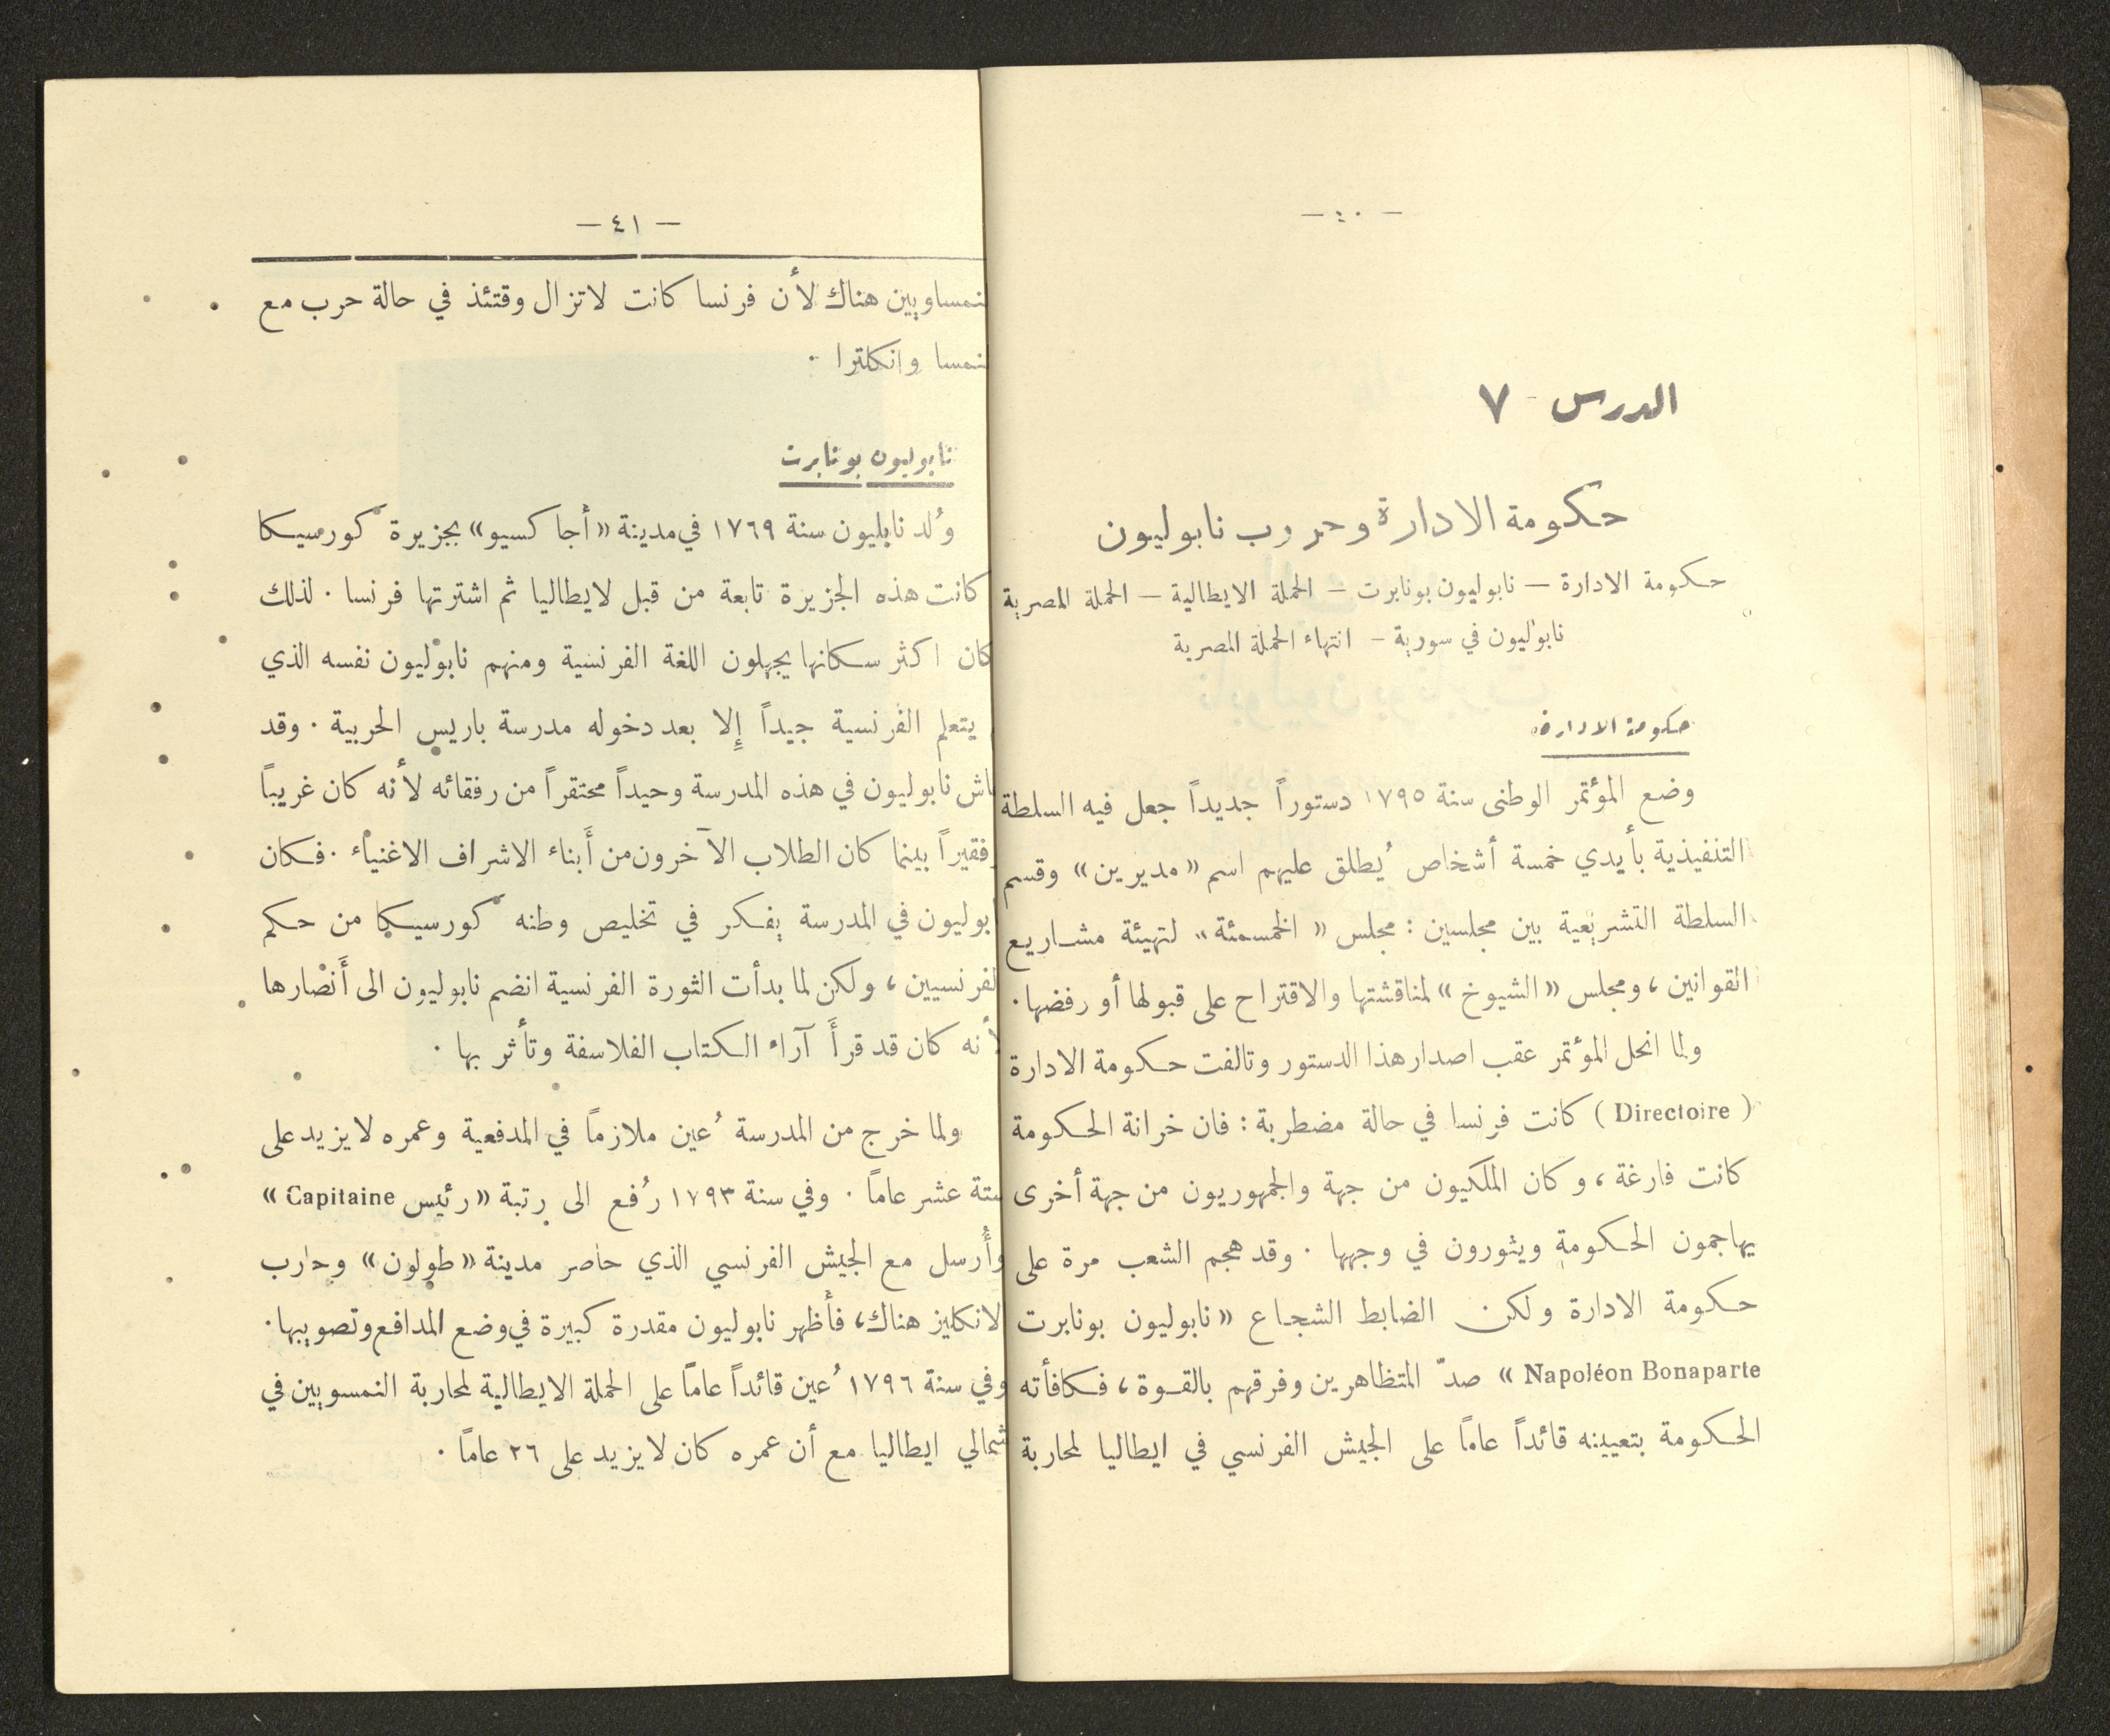 — ٤٠ —
الدرس - ٧
حكومة الادارة وحروب نابوليون
حكومة الادارة — نابوليون بونابرت — الحملة الايطالية — الحملة المصرية
نابوليون في سورية — انتهاء الحملة المصرية
حكومة الادارة
وضع المؤتمر الوطنى سنة ١٧٩٥ دستوراً جديداً جعل فيه السلطة
التنفيذية بأيدي خمسة أشخاص يُطلق عليهم اسم «مديرين» وقسم
السلطة التشريعية بين مجلسين : مجلس « الخمسمئة » لتهيئة مشاريع
القوانين ، ومجلس «الشيوخ» لمناقشتها والاقتراح على قبولها أو رفضها .
ولما انحل المؤتمر عقب اصدار هذا الدستور وتالفت حكومة الادارة
( Directoire ) كانت فرنسا في حالة مضطربة : فان خزانة الحكومة
كانت فارغة ، وكان الملكيون من جهة والجمهوريون من جهة أخرى
يهاجمون الحكومة ويثورون في وجهها . وقد هجم الشعب مرة على
حكومة الادارة ولكن الضابط الشجاع « نابوليون بونابرت
Napoléon Bonaparte » صدّ المتظاهرين وفرقهم بالقوة ، فكافأته
الحكومة بتعيينه قائداً عاماً على الجيش الفرنسي في ايطاليا لمحاربة
— ٤١ —
لنمساويين هناك لأن فرنسا كانت لاتزال وقتئذ في حالة حرب مع
لنمسا وانكلترا .
نابوليون بونابرت
وُلد نابليون سنة ١٧٦٩ في مدينة «أجاكسيو» بجزيرة كورسيكا
كانت هذه الجزيرة تابعة من قبل لايطاليا ثم اشترتها فرنسا . لذلك
كان اكثر سكانها يجهلون اللغة الفرنسية ومنهم نابوليون نفسه الذي
يتعلم الفرنسية جيداً إلا بعد دخوله مدرسة باريس الحربية . وقد
اش نابوليون في هذه المدرسة وحيداً محتقراً من رفقائه لأنه كان غريباً
فقيراً بينما كان الطلاب الآخرون من أَبناء الاشراف الاغنياء . فكان
ابوليون في المدرسة يفكر في تخليص وطنه كورسيكا من حكم
لفرنسيين ، ولكن لما بدأت الثورة الفرنسية انضم نابوليون الى أَنصارها
لأنه كان قد قرأَ آراء الكتاب الفلاسفة وتأثر بها .
ولما خرج من المدرسة عُين ملازماً في المدفعية وعمره لا يزيد على
ستة عشر عاماً . وفي سنة ١٧٩٣ رُفع الى رتبة «رئيس Capitaine »
وأُرسل مع الجيش الفرنسي الذي حاصر مدينة «طولون» وحارب
لانكليز هناك ، فأَظهر نابوليون مقدرة كبيرة في وضع المدافع وتصويبها .
وفي سنة ١٧٩٦ عُين قائداً عاماً على الحملة الايطالية لمحاربة النمسويين في
شمالي ايطاليا مع أن عمره كان لا يزيد على ٢٦ عاماً .